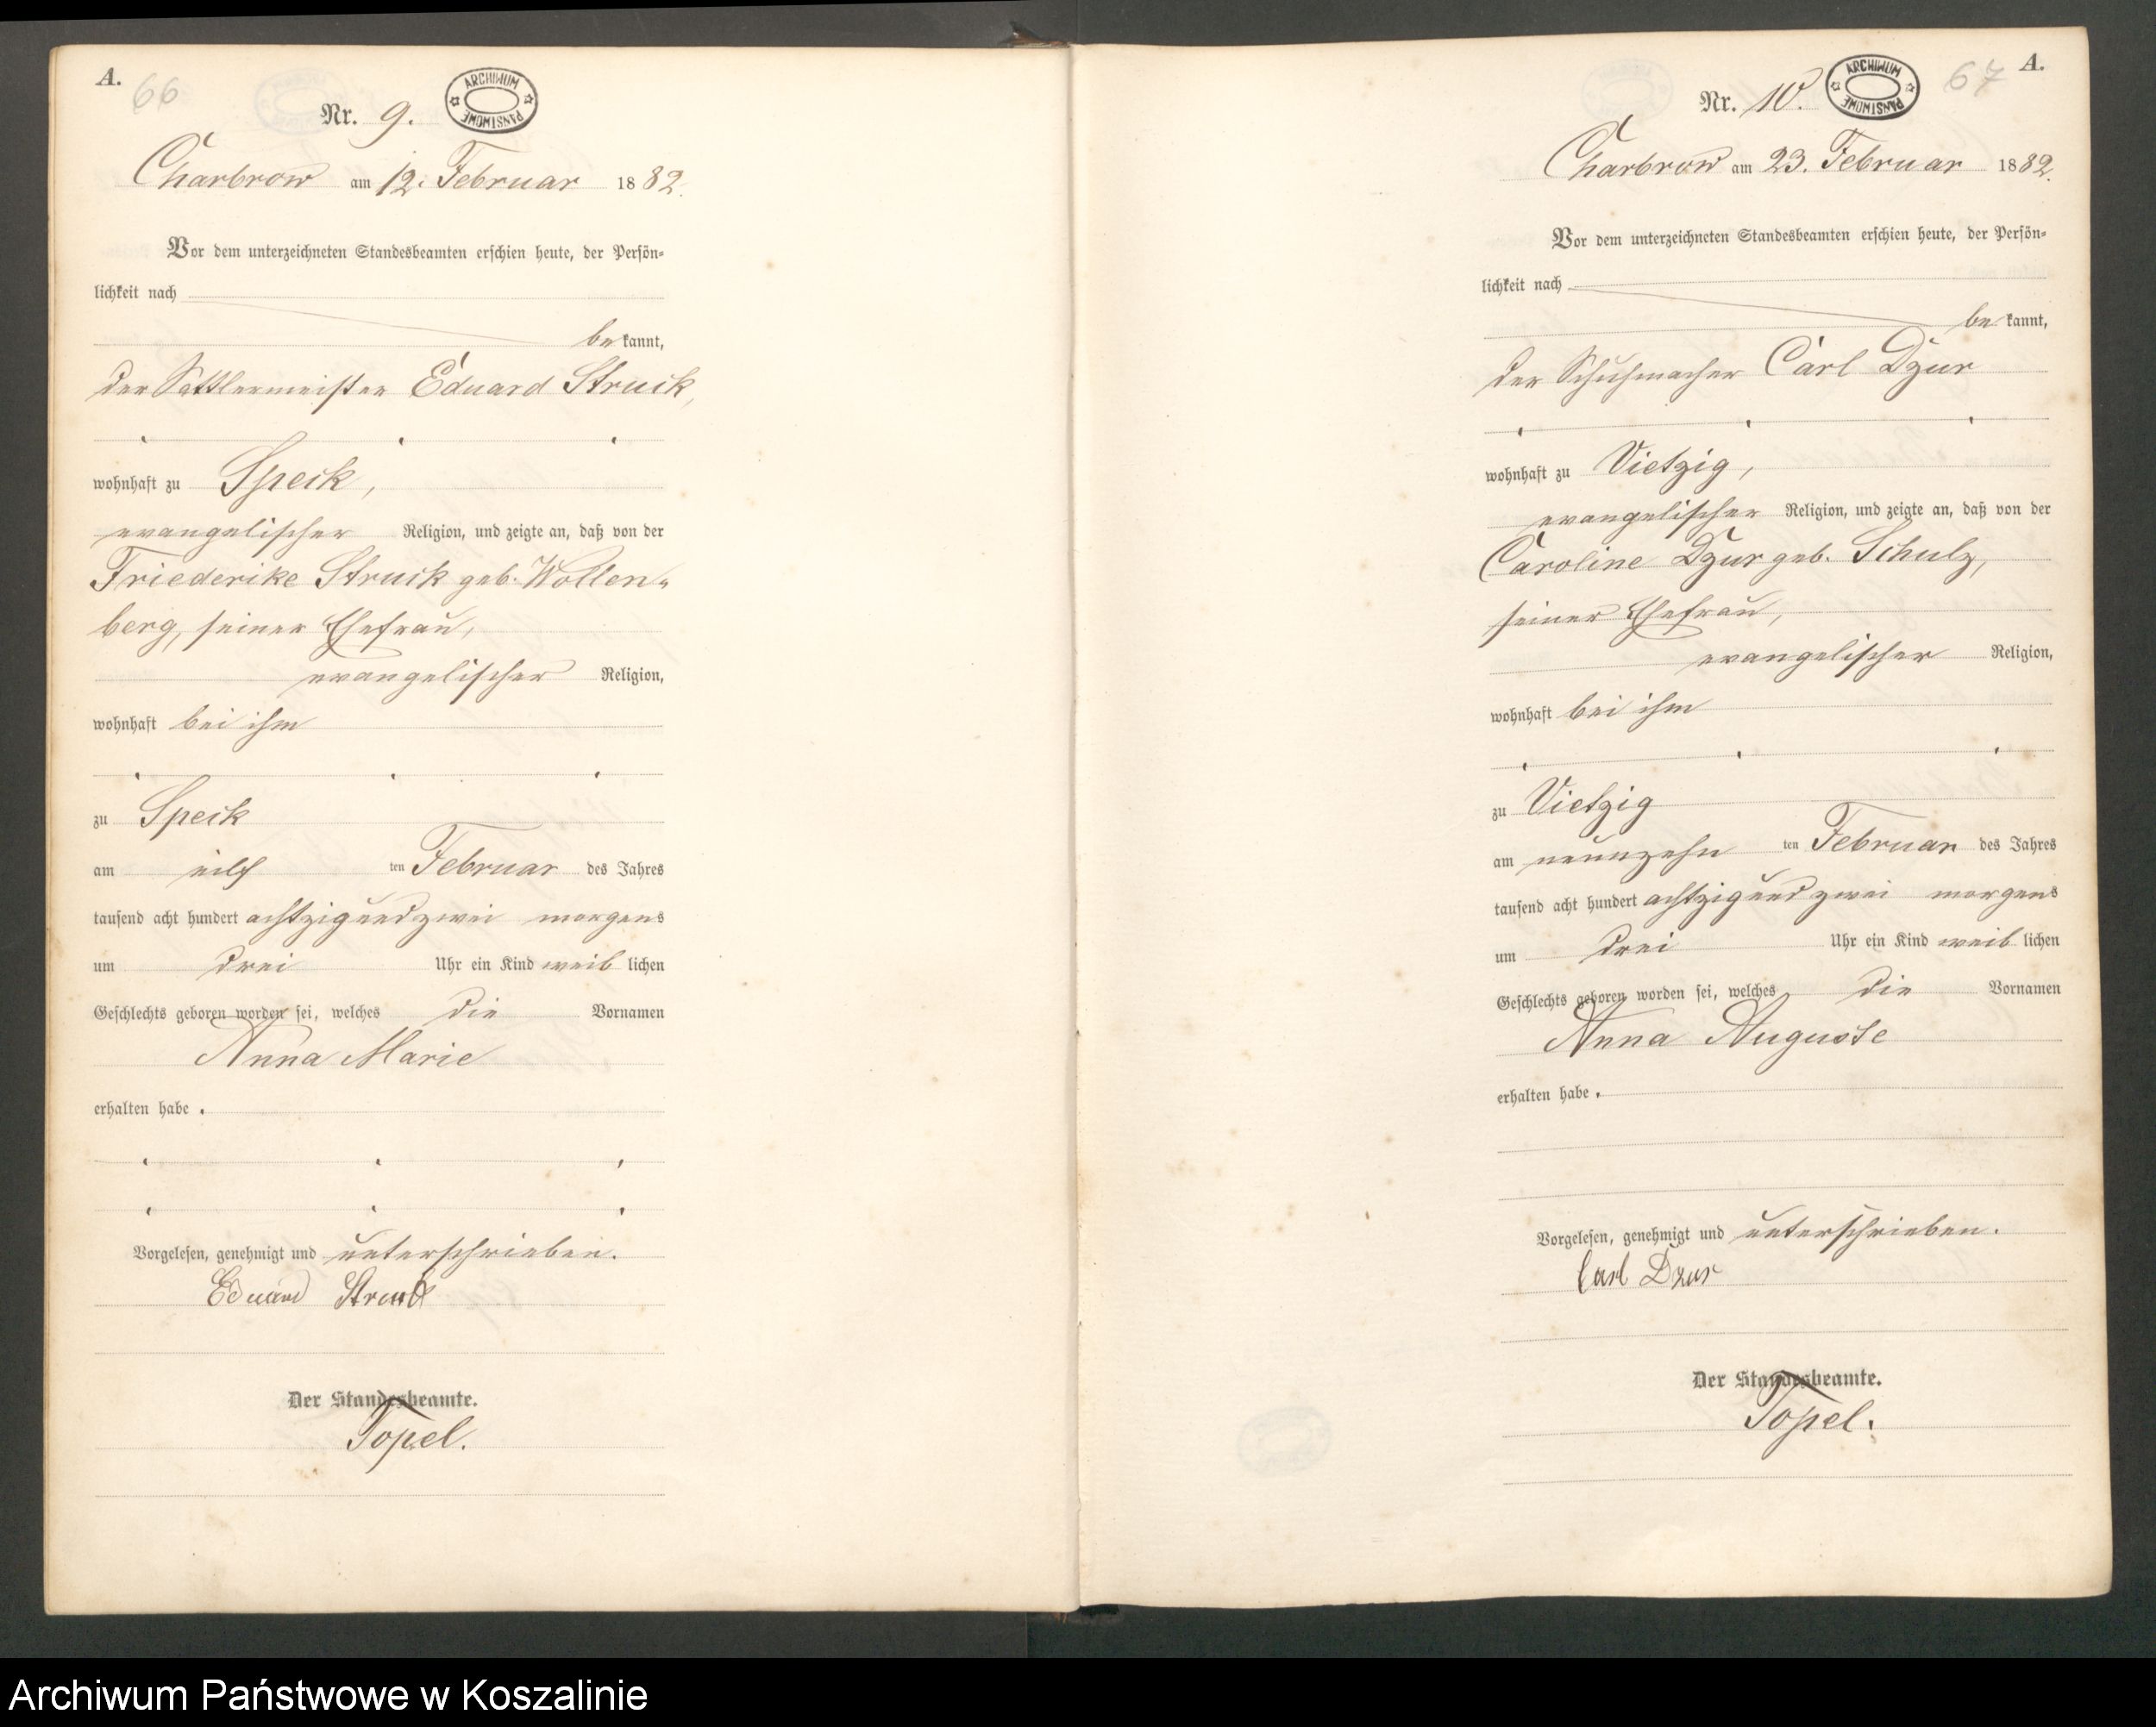 A.
66
Nr. 9.
ARCHIWUM PAŃSTWOWE
Charbrow am 12. Februar 1882.
Vor dem unterzeichneten Standesbeamten erschien heute, der Persön-
lichkeit nach
be kannt,
der Sattlermeister Eduard Struck,
wohnhaft zu Speck,
evangelischer Religion, und zeigte an, daß von der
Friederike Struck geb. Wollen-
berg, seiner Ehefrau,
evangelischer Religion,
wohnhaft bei ihm
zu Speck
am eilf ten Februar des Jahres
tausend acht hundert achtzig und zwei morgens
um drei Uhr ein Kind weib lichen
Geschlechts geboren worden sei, welches die Vornamen
Anna Marie
erhalten habe .
Vorgelesen, genehmigt und unterschrieben.
Eduard Struck
Der Standesbeamte.
Topel.
67 A.
Nr. 10.
ARCHIWUM PAŃSTWOWE
Charbrow am 23. Februar 1882.
Vor dem unterzeichneten Standesbeamten erschien heute, der Persön-
lichkeit nach
be kannt,
der Schuhmacher Carl Dzur
wohnhaft zu Vietzig,
evangelischer Religion, und zeigte an, daß von der
Caroline Dzur geb. Schulz,
seiner Ehefrau,
evangelischer Religion,
wohnhaft bei ihm
zu Vietzig
am neunzehn ten Februar des Jahres
tausend acht hundert achtzig und zwei morgens
um drei Uhr ein Kind weib lichen
Geschlechts geboren worden sei, welches die Vornamen
Anna Auguste
erhalten habe .
Vorgelesen, genehmigt und unterschrieben.
Carl Dzur
Der Standesbeamte.
Topel.
Archiwum Państwowe w Koszalinie